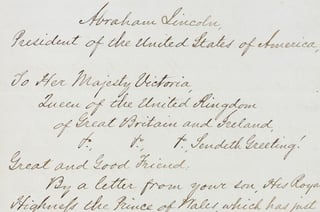 Abraham Lincoln,
President of the United States of America,
To Her Majesty Victoria,
Queen of the United Kingdom
of Great Britain and Ireland,
&c. &c. &c. Sendeth Greeting!
Great and Good Friend:
By a letter from your son, His Royal
Highness the Prince of Wales, which has just